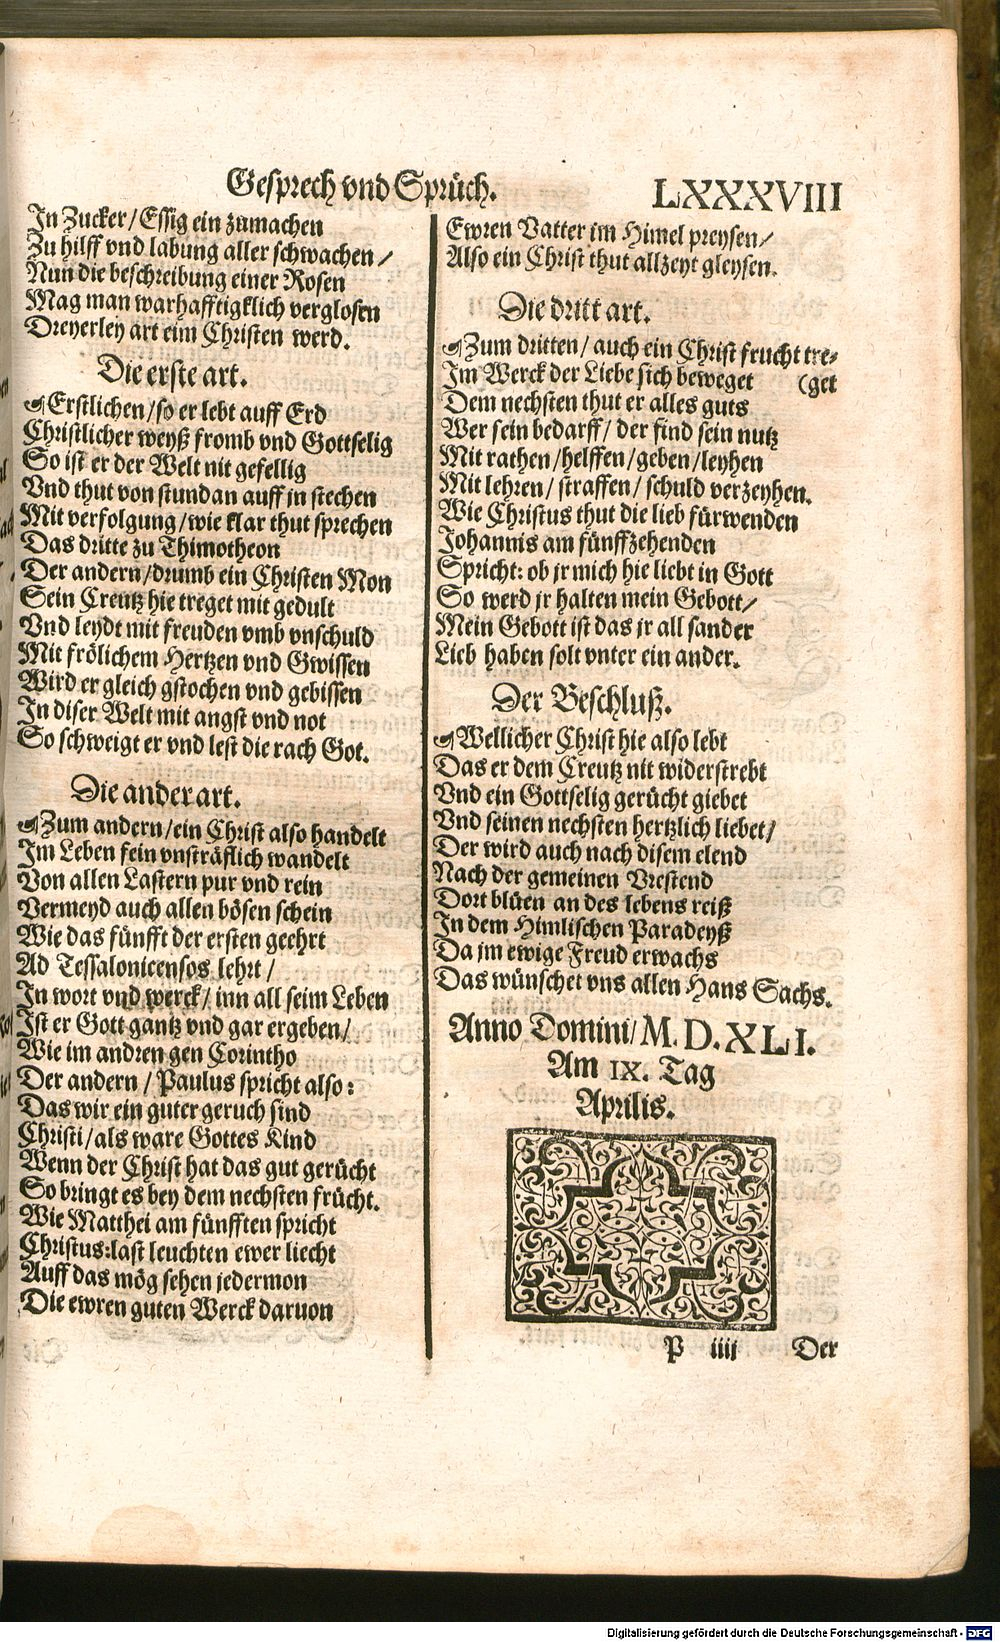 Gesprech vnd Sprüch. LXXXVIII
In Zucker/Essig ein zumachen
Zu hilff vnd labung aller schwachen/
Nun die beschreibung einer Rosen
Mag man warhafftigklich verglosen
Dreyerley art eim Christen werd.
Die erste art.
☙Erstlichen/so er lebt auff Erd
Christlicher weyß fromb vnd Gottselig
So ist er der Welt nit gefellig
Vnd thut von stundan auff jn stechen
Mit verfolgung/wie klar thut sprechen
Das dritte zu Thimotheon
Der andern/drumb ein Christen Mon
Sein Creutz hie treget mit gedult
Vnd leydt mit freuden vmb vnschuld
Mit frölichem Hertzen vnd Gwissen
Wird er gleich gstochen vnd gebissen
In diser Welt mit angst vnd not
So schweigt er vnd lest die rach Got.
Die ander art.
☙Zum andern/ein Christ also handelt
Im Leben fein vnsträflich wandelt
Von allen Lastern pur vnd rein
Vermeyd auch allen bösen schein
Wie das fünfft der ersten geehrt
Ad Tessalonicensos lehrt/
In wort vnd werck/inn all seim Leben
Ist er Gott gantz vnd gar ergeben/
Wie im andren gen Corintho
Der andern/Paulus spricht also:
Das wir ein guter geruch sind
Christi/als ware Gottes Kind
Wenn der Christ hat das gut gerücht
So bringt es bey dem nechsten frücht.
Wie Matthei am fünfften spricht
Christus:last leuchten ewer liecht
Auff das mög sehen jedermon
Die ewren guten Werck daruon
Ewren Vatter im Himel preysen/
Also ein Christ thut allzeyt gleysen.
Die dritt art.
☙Zum dritten/auch ein Christ frucht tre-
Im Werck der Liebe sich beweget (get
Dem nechsten thut er alles guts
Wer sein bedarff/der find sein nutz
Mit rathen/helffen/geben/leyhen
Mit lehren/straffen/schuld verzeyhen.
Wie Christus thut die lieb fürwenden
Johannis am fünffzehenden
Spricht: ob jr mich hie liebt in Gott
So werd jr halten mein Gebott/
Mein Gebott ist das jr all sander
Lieb haben solt vnter ein ander.
Der Beschluß.
☙Wellicher Christ hie also lebt
Das er dem Creutz nit widerstrebt
Vnd ein Gottselig gerücht giebet
Vnd seinen nechsten hertzlich liebet/
Der wird auch nach disem elend
Nach der gemeinen Vrestend
Dort blüen an des lebens reiß
In dem Himlischen Paradeyß
Da jm ewige Freud erwachs
Das wünschet vns allen Hans Sachs.
Anno Domini/M.D.XLI.
Am IX. Tag
Aprilis.
P iiij Der
Digitalisierung gefördert durch die Deutsche Forschungsgemeinschaft - DFG